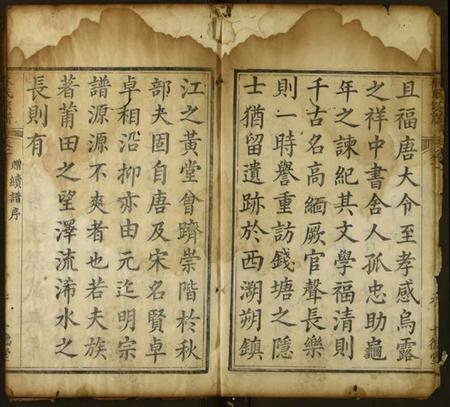 且福唐大令至孝感烏露
之祥中書舍人孤忠助龜
年之諫紀其文學福清則
千古名高緬厥官聲長樂
則一時譽重訪錢塘之隱
士猶留遺跡於西溯朔鎮
江之黃堂曾躋崇階於秋
部夫固自唐及宋名賢卓
卓相沿抑亦由元迄明宗
譜源源不爽者也若夫族
著莆田之望澤流浠水之
長則有
贈續譜序